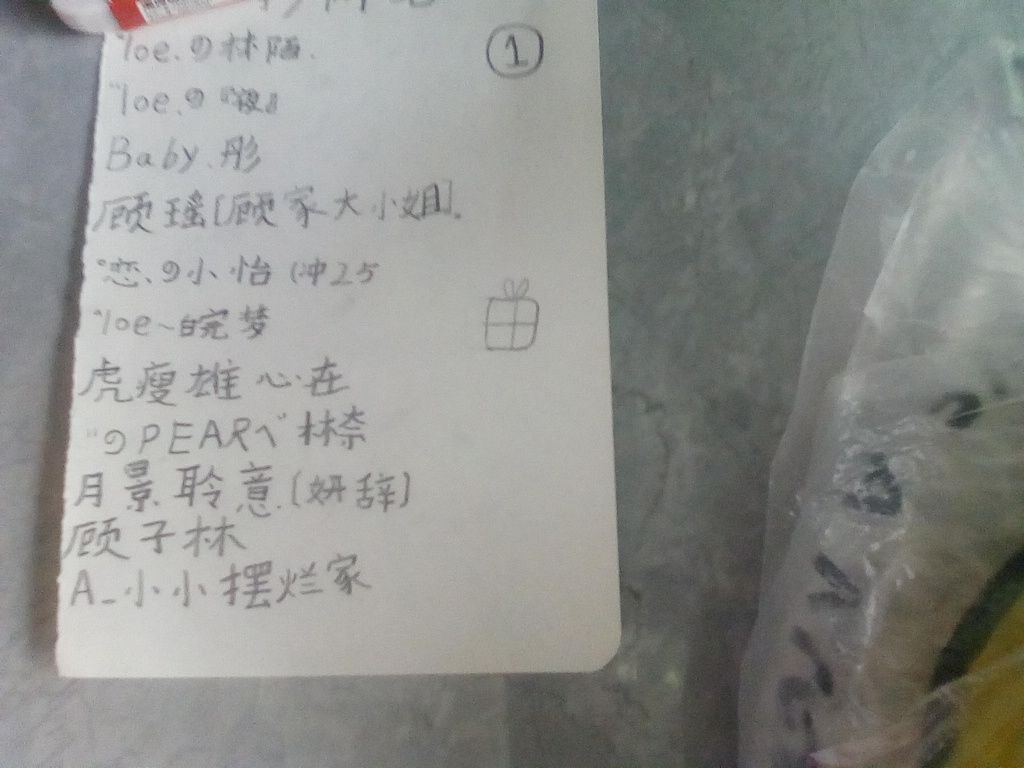 "loe.の林陌.
①
"loe.の『被』
Baby.彤
顾瑶[顾家大小姐].
"恋.の小怡(冲25
"loe~皖梦
虎瘦雄心在
"のPEARへ"林奈
月景聆意(妍辞)
顾子林
A_小小摆烂家